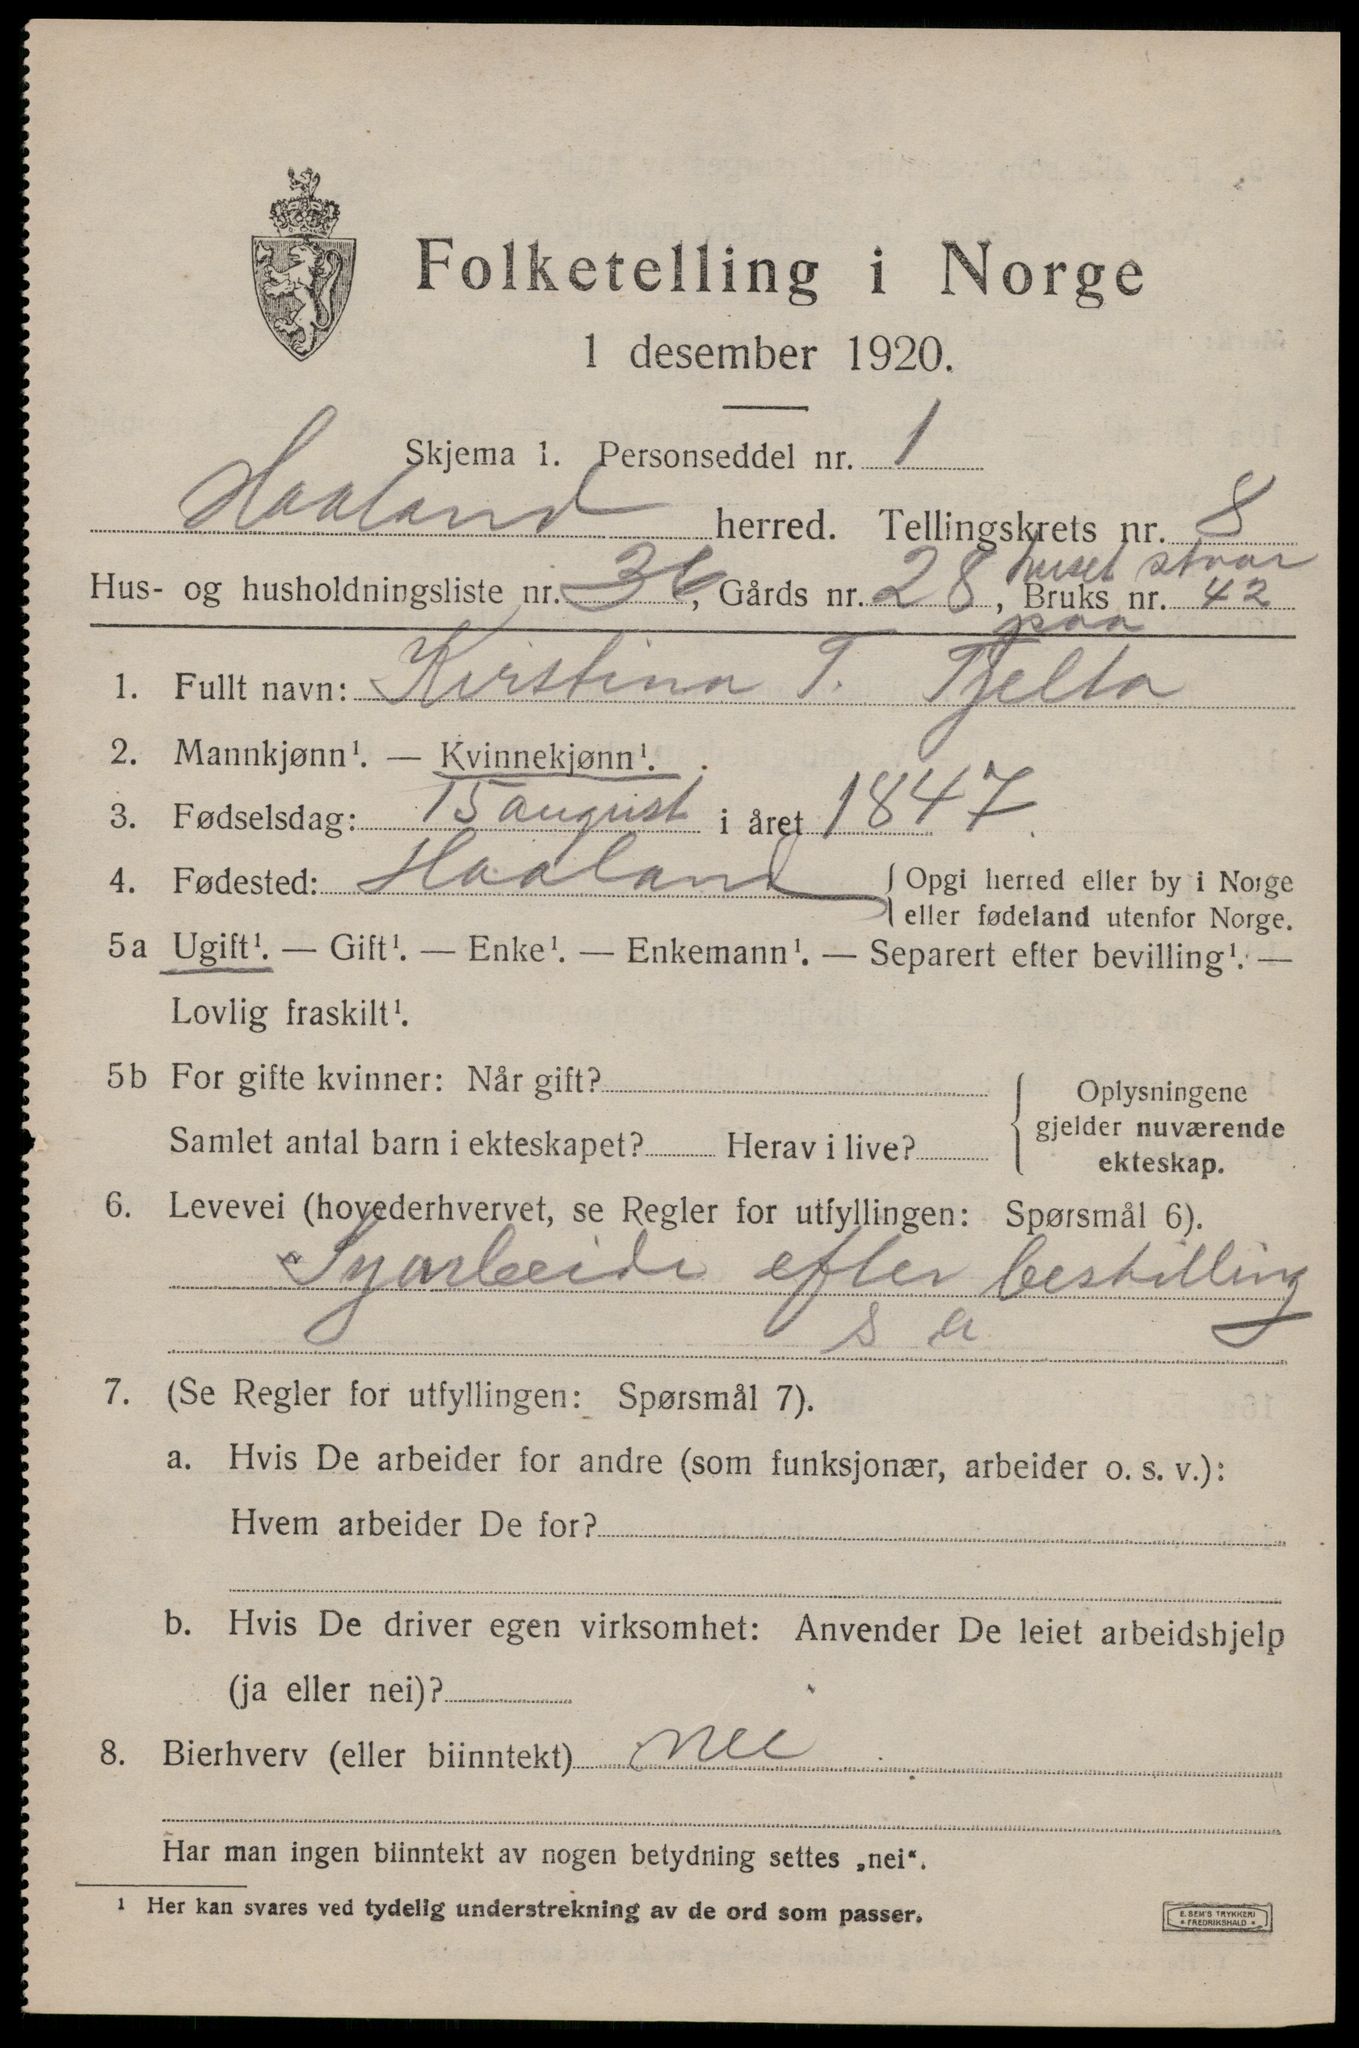 Folketelling i Norge
1 desember 1920.
Skjema 1. Personseddel nr. 1
Haaland herred. Tellingskrets nr. 8
huset staar
Hus- og husholdningsliste nr. 36, Gårds nr. 28, Bruks nr. 42
paa
1. Fullt navn: Kirstina T. Tjelta
2. Mannkjønn¹. — Kvinnekjønn¹.
3. Fødselsdag: 15 august i året 1847
4. Fødested: Haaland { Opgi herred eller by i Norge
eller fødeland utenfor Norge.
5a Ugift¹. — Gift¹. — Enke¹. — Enkemann¹. — Separert efter bevilling¹. —
Lovlig fraskilt¹.
5b For gifte kvinner: Når gift?
Samlet antal barn i ekteskapet? Herav i live?
Oplysningene
gjelder nuværende
ekteskap.
6. Levevei (hovederhvervet, se Regler for utfyllingen: Spørsmål 6).
Syarbeide efter bestilling
s a
7. (Se Regler for utfyllingen: Spørsmål 7).
a. Hvis De arbeider for andre (som funksjonær, arbeider o. s. v.):
Hvem arbeider De for?
b. Hvis De driver egen virksomhet: Anvender De leiet arbeidshjelp
(ja eller nei)?
8. Bierhverv (eller biinntekt) nei
Har man ingen biinntekt av nogen betydning settes „nei“.
¹ Her kan svares ved tydelig understrekning av de ord som passer.
E. SEM'S TRYKKERI
* FREDRIKSHALD *